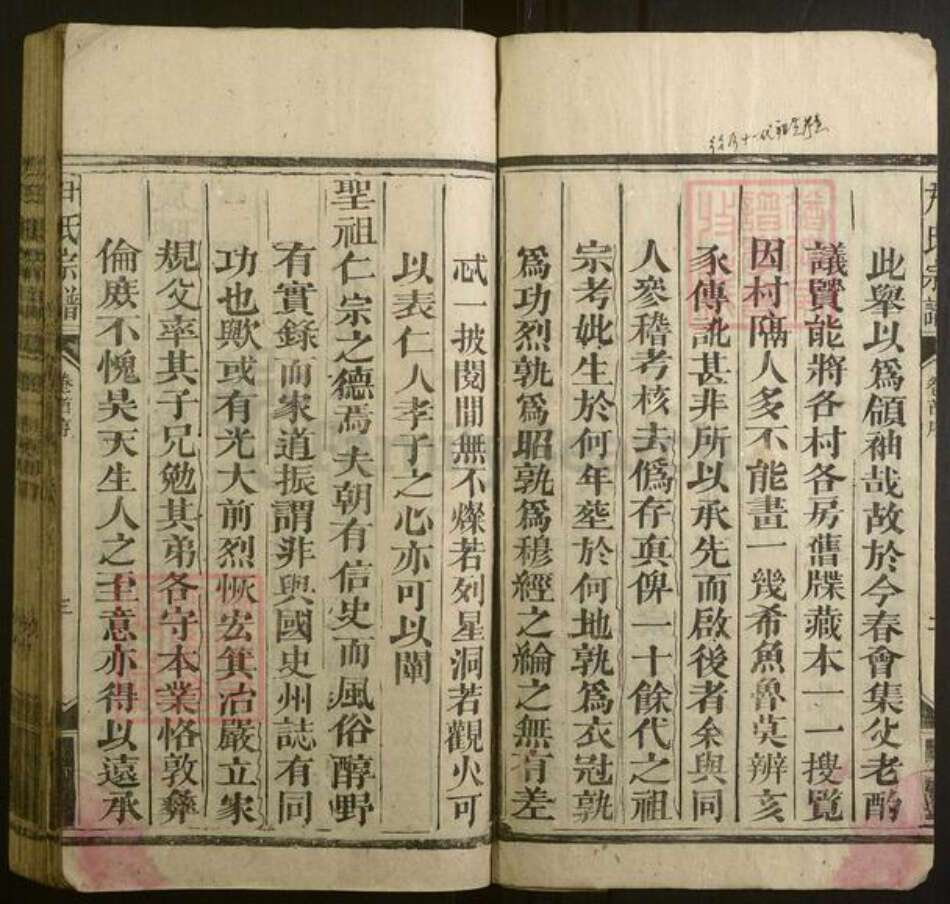 此舉以爲領袖哉故於今春會集父老酌
議賢能將各村各房舊牒藏本一一搜覽
因村隔人多不能畫一幾希魚魯莫辨亥
豕傳訛甚非所以承先而啟後者余與同
人參稽考核去僞存真俾一十餘代之祖
宗考妣生於何年塟於何地孰爲衣冠孰
爲功烈孰爲昭孰爲穆經之綸之無有差
忒一披閱間無不燦若列星洞若觀火可
以表仁人孝子之心亦可以闡
聖祖仁宗之德焉夫朝有信史而風俗醇野
有實錄而家道振謂非與國史州誌有同
功也歟或有光大前烈恢宏箕冶嚴立家
規父率其子兄勉其弟各守本業恪敦彝
倫庶不愧昊天生人之至意亦得以遠承
尹氏宗譜
卷首序
三